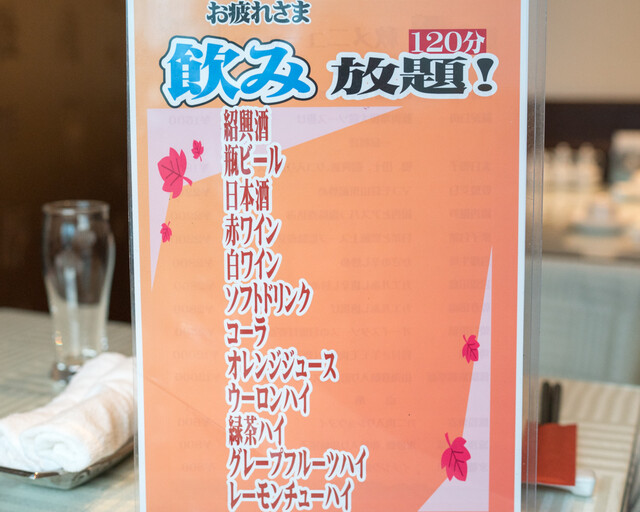 お疲れさま
飲み放題!
120分
紹興酒
瓶ビール
日本酒
赤ワイン
白ワイン
ソフトドリンク
コーラ
オレンジジュース
ウーロンハイ
緑茶ハイ
グレープフルーツハイ
レーモンチューハイ